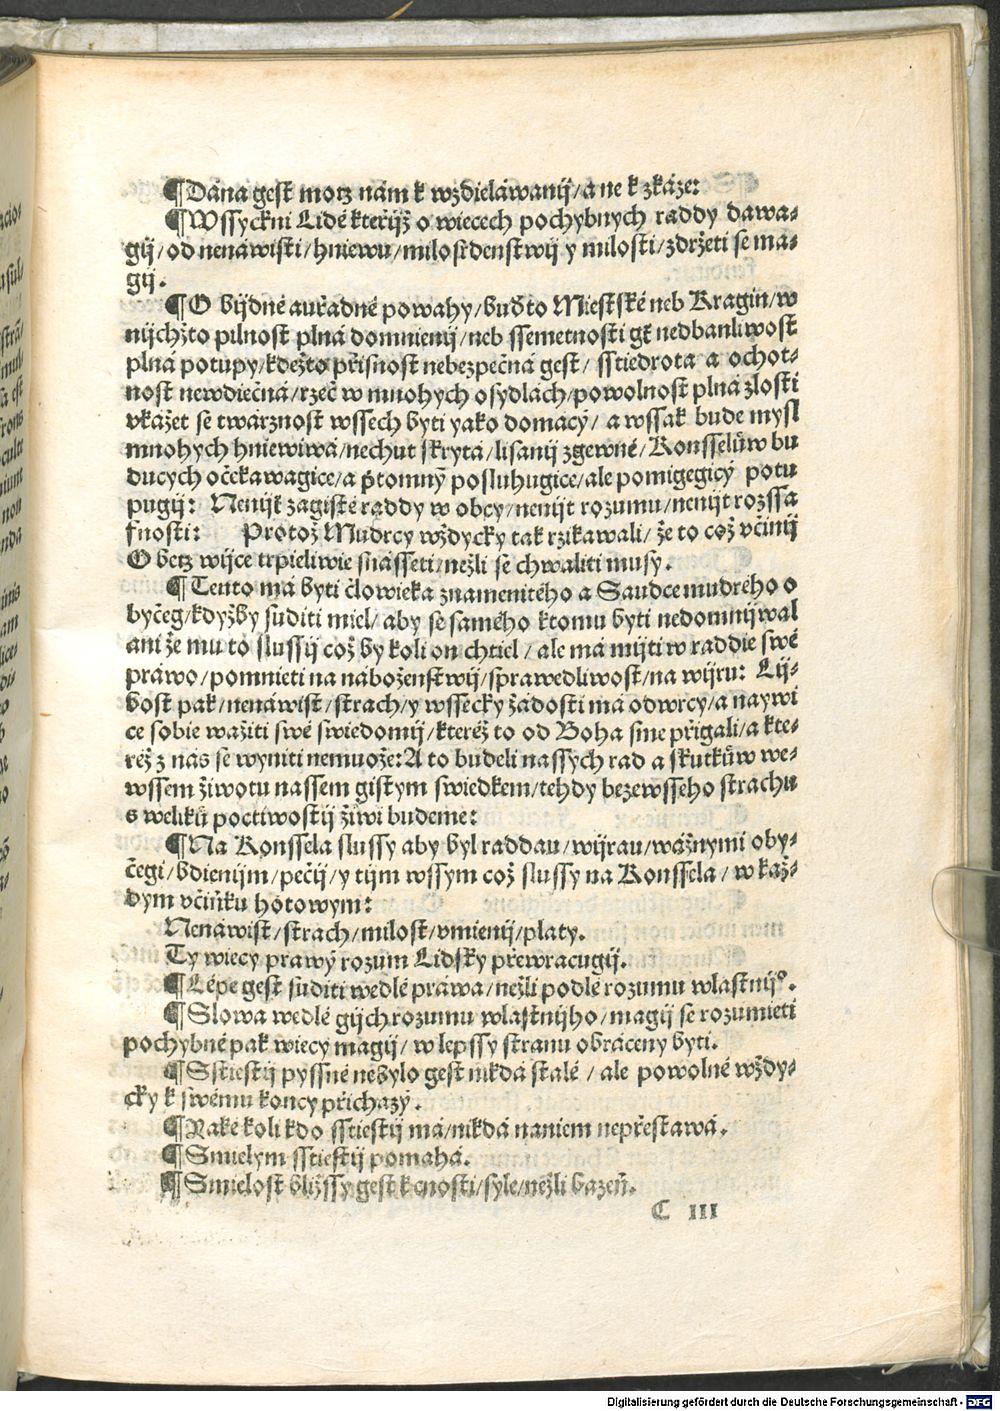 ¶Dána gest motz nám k wzdielawanij/a ne k zkáze:
¶Wssyckni Lidé kterijž o wiecech pochybnych raddy dawa-
gij/od nenáwisti/hniewu/milosrdenstwij y milosti/zdržeti se ma-
gij.
¶O bijdné auřadné powahy/buďto Miestské neb Kragin/w
nijchžto pilnost plná domnienij/neb ssemetnosti gt nedbanliwost
plná potupy/kdežto přisnost nebezpečná gest/ sstiedrota a ochot-
nost newdiečná/rzeč w mnohych osydlách/powolnost plná zlosti
vkažet se twárznost wssech byti yako domacý/ a wssak bude mysl
mnohych hniewiwá/nechut skrytá/lisanij zgewné/Konsselůw bu
ducych očekawagice/a přtomný posluhugice/ale pomigegicý potu
pugij: Nenijk zagisté raddy w obcy/nenijt rozumu/nenijt rozssa
fnosti: Protož Mudrcy wždycky tak rzikawali/ že to což včinij
O betz wijce trpieliwie snásseti/nežli se chwaliti musy.
¶Tento má byti človieka znamenitého a Saudce mudrého o
byčeg/kdyžby suditi miel/ aby se samého ktomu byti nedomnijwal
ani že mu to slussij což by koli on chtiel/ ale má mijti w raddie swé
práwo/pomnieti na náboženstwij/sprawedliwost/na wijru: Lij-
bost pak/nenáwist/strach/y wssecky žádosti má odwrcy/a naywi
ce sobie wažiti swé swiedomij/kteréž to od Boha sme přigali/a kte-
réž z nás se wyniti nemuože: A to budeli nassych rad a skutkůw we-
wssem žiwotu nassem gistym swiedkem/tehdy bezewsseho strachu
s welikú poctiwostij žiwi budeme:
¶Na Konssela slussy aby byl raddau/wijrau/wážnymi oby-
čegi/bdienijm/pečij/y tijm wssym což slussy na Konssela/ w kaž-
dym včinku hotowym:
Nenáwist/strach/milost/vmienij/platy.
Ty wiecy prawý rozum Lidsky přewracugij.
¶Lépe gest suditi wedlé práwa/nežli podlé rozumu wlastnijº.
¶Slowa wedlé gijch rozumu wlastnijho/magij se rozumieti
pochybné pak wiecy magij/ w lepssy stranu obráceny byti.
¶Sstiestij pyssné nebylo gest nikdá stalé/ ale powolné wždy-
cky k swému koncy přichazý.
¶Rakékoli kdo sstiestij má/nikdá naniem nepřestawá.
¶Smielym sstiestij pomahá.
¶Smielost bližssy gest k cnosti/syle/nežli bazeň.
C III
Digitalisierung gefördert durch die Deutsche Forschungsgemeinschaft - DFG